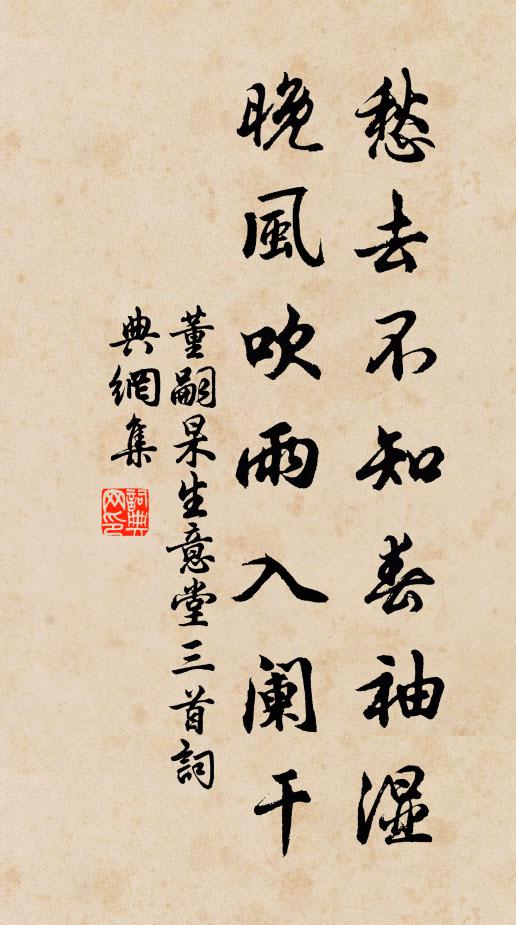 愁去不知春袖濕
晚風吹雨入闌干
董嗣杲生意堂三首詞
典網集
詞典網印